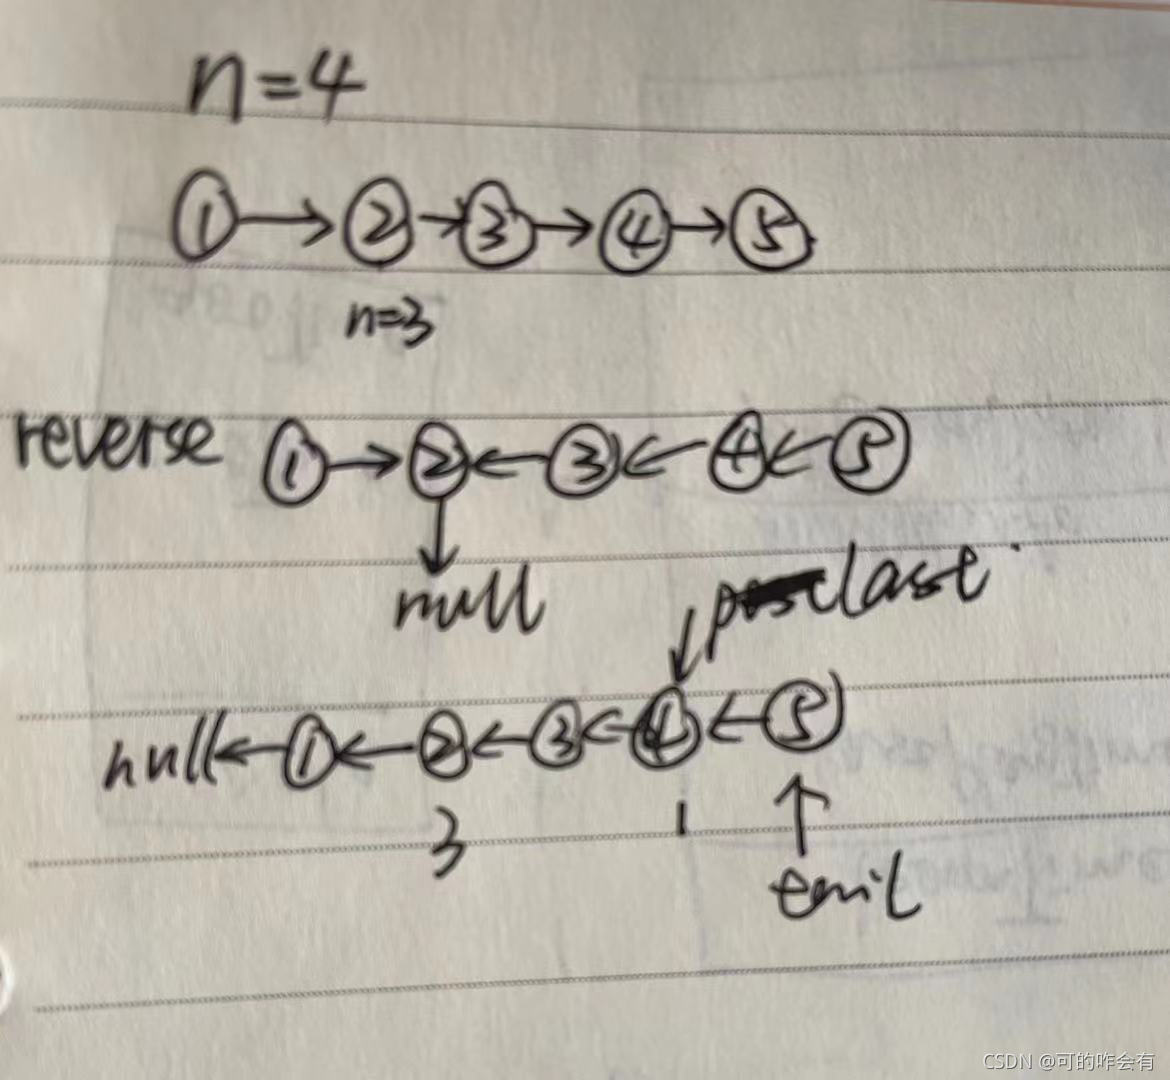 n=4
①→②→③→④→⑤
n=3
reverse ①→②←③←④←⑤
↓
null
last
null←①←②←③←④←⑤
3 1
CSDN @可的咋会有